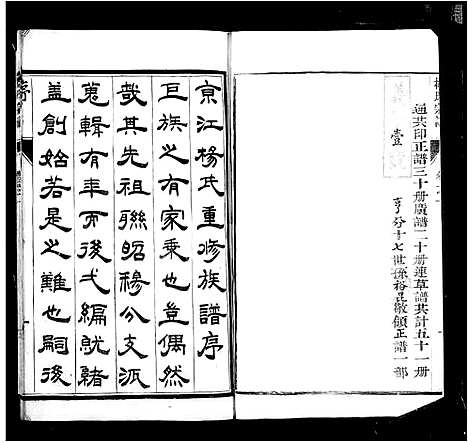 通共印正譜三十册廣譜二十册連草譜共計五十一册
壹
亨分十七世孫裕昆敬領正譜一部
京江楊氏重修族譜序
巨族之有家乗也豈偶然
哉其先祖聯昭穆分支派
蒐輯有年而後弋編就緒
盖創始若是之難也嗣後